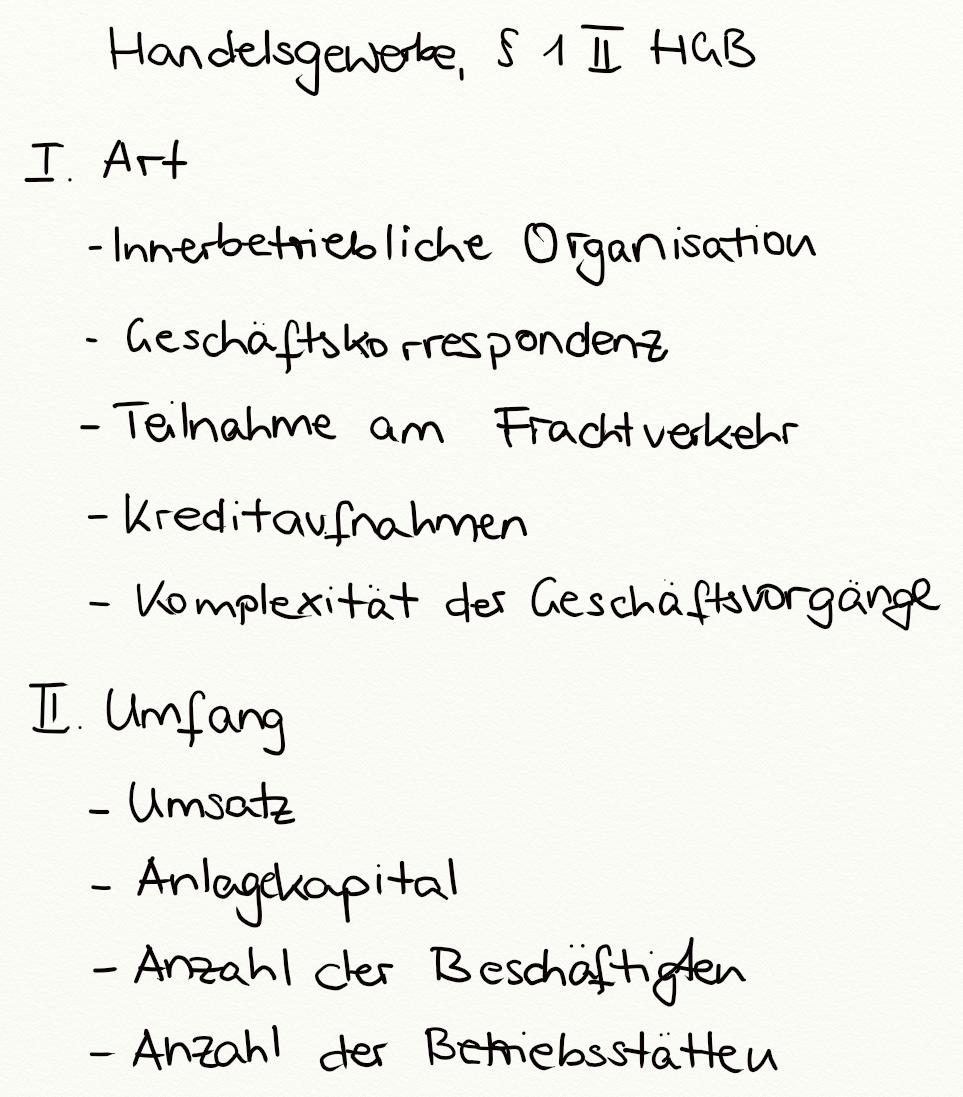 Handelsgewerbe, § 1 II HGB
I. Art
- Innerbetriebliche Organisation
- Geschäftskorrespondenz
- Teilnahme am Frachtverkehr
- Kreditaufnahmen
- Komplexität der Geschäftsvorgänge
II. Umfang
- Umsatz
- Anlagekapital
- Anzahl der Beschäftigten
- Anzahl der Betriebsstätten